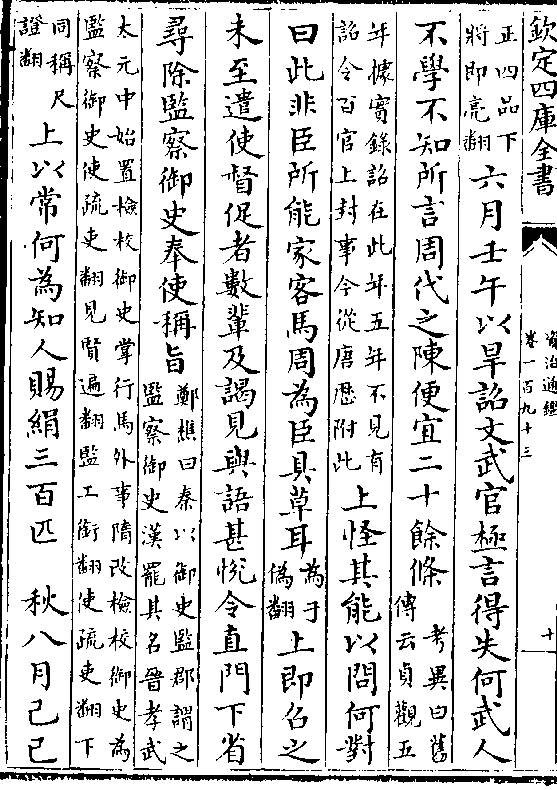 欽定四庫全書
資治通鑑
卷一百九十三
十
正四品下
將即亮翻
六月壬午以旱詔文武官極言得失何武人
不學不知所言周代之陳便宜二十餘條
考異曰舊
傳云貞觀五
年據實錄詔在此年五年不見有
詔令百官上封事今從唐歷附此
上怪其能以問何對
曰此非臣所能家客馬周為臣具草耳
為于
偽翻
上即召之
未至遣使督促者數輩及謁見與語甚悅令直門下省
尋除監察御史奉使稱旨
鄭樵曰秦以御史監郡謂之
監察御史漢罷其名晉孝武
太元中始置檢校御史掌行馬外事隋改檢校御史為
監察御史使疏吏翻見賢遍翻監工銜翻使疏吏翻下
同稱尺
證翻
上以常何為知人賜絹三百匹 秋八月己巳